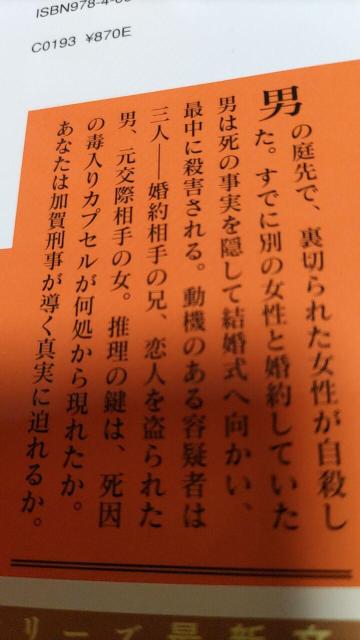 ISBN978-4-
C0193 ¥870E
男の庭先で、裏切られた女性が自殺し
た。すでに別の女性と婚約していた
男は死の事実を隠して結婚式へ向かい、
最中に殺害される。動機のある容疑者は
三人――婚約相手の兄、恋人を盗られた
男、元交際相手の女。推理の鍵は、死因
の毒入りカプセルが何処から現れたか。
あなたは加賀刑事が導く真実に迫れるか。
リーズ最新